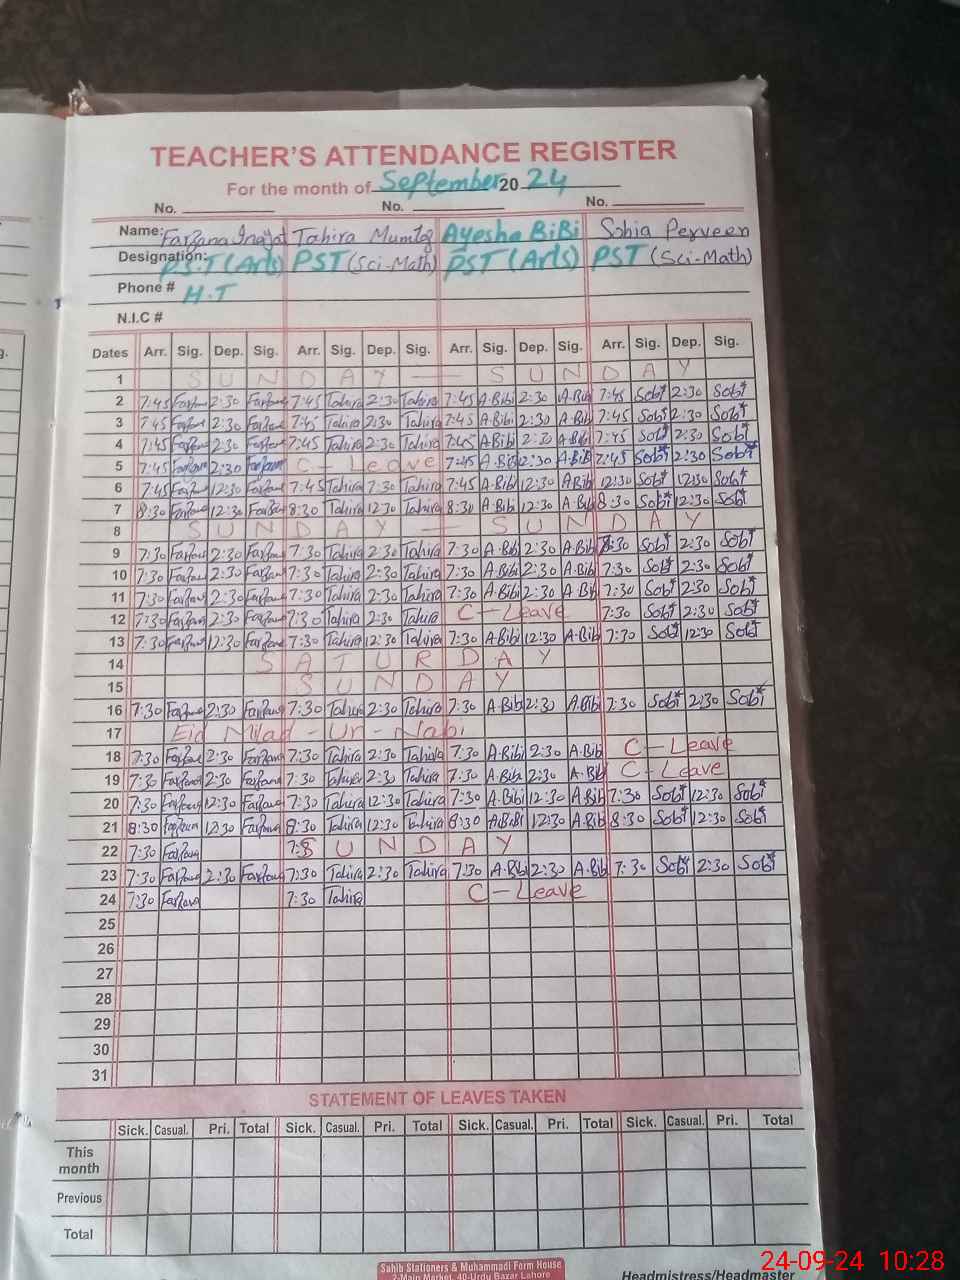 TEACHER'S ATTENDANCE REGISTER
For the month of September 20 24
No. No. No.
Name: Farzana Inayat Tahira Mumtaz Ayesha BiBi Sobia Perveen
Designation: P.S.T (Arts) PST (Sci-Math) PST (Arts) PST (Sci-Math)
Phone # H.T
N.I.C #
Dates Arr. Sig. Dep. Sig. Arr. Sig. Dep. Sig. Arr. Sig. Dep. Sig. Arr. Sig. Dep. Sig.
1 SUNDAY — SUNDAY
2 7:45 Farzana 2:30 Farzana 7:45 Tahira 2:30 Tahira 7:45 A.Bibi 2:30 A.Bibi 7:45 Sobi 2:30 Sobi
3 7:45 Farzana 2:30 Farzana 7:45 Tahira 2:30 Tahira 7:45 A.Bibi 2:30 A.Bibi 7:45 Sobi 2:30 Sobi
4 7:45 Farzana 2:30 Farzana 7:45 Tahira 2:30 Tahira 7:45 A.Bibi 2:30 A.Bibi 7:45 Sobi 2:30 Sobi
5 7:45 Farzana 2:30 Farzana C - Leave 7:45 A.Bibi 2:30 A.Bibi 7:45 Sobi 2:30 Sobi
6 7:45 Farzana 12:30 Farzana 7:45 Tahira 7:30 Tahira 7:45 A.Bibi 12:30 A.Bibi 12:30 Sobi 12:30 Sobi
7 8:30 Farzana 12:30 Farzana 8:30 Tahira 12:30 Tahira 8:30 A.Bibi 12:30 A.Bibi 8:30 Sobi 12:30 Sobi
8 SUNDAY — SUNDAY
9 7:30 Farzana 2:30 Farzana 7:30 Tahira 2:30 Tahira 7:30 A.Bibi 2:30 A.Bibi :30 Sobi 2:30 Sobi
10 7:30 Farzana 2:30 Farzana 7:30 Tahira 2:30 Tahira 7:30 A.Bibi 2:30 A.Bibi 7:30 Sobi 2:30 Sobi
11 7:30 Farzana 2:30 Farzana 7:30 Tahira 2:30 Tahira 7:30 A.Bibi 2:30 A.Bibi 7:30 Sobi 2:30 Sobi
12 7:30 Farzana 2:30 Farzana 7:30 Tahira 2:30 Tahira C - Leave 7:30 Sobi 2:30 Sobi
13 7:30 Farzana 12:30 Farzana 7:30 Tahira 12:30 Tahira 7:30 A.Bibi 12:30 A.Bibi 7:30 Sobi 12:30 Sobi
14 SATURDAY
15 SUNDAY
16 7:30 Farzana 2:30 Farzana 7:30 Tahira 2:30 Tahira 7:30 A.Bibi 2:30 A.Bibi 7:30 Sobi 2:30 Sobi
17 Eid Milad - Un - Nabi
18 7:30 Farzana 2:30 Farzana 7:30 Tahira 2:30 Tahira 7:30 A.Bibi 2:30 A.Bibi C - Leave
19 7:30 Farzana 2:30 Farzana 7:30 Tahira 2:30 Tahira 7:30 A.Bibi 2:30 A.Bibi C - Leave
20 7:30 Farzana 12:30 Farzana 7:30 Tahira 12:30 Tahira 7:30 A.Bibi 12:30 A.Bibi 7:30 Sobi 12:30 Sobi
21 8:30 Farzana 12:30 Farzana 8:30 Tahira 12:30 Tahira 8:30 A.Bibi 12:30 A.Bibi 8:30 Sobi 12:30 Sobi
22 7:30 Farzana SUNDAY
23 7:30 Farzana 2:30 Farzana 7:30 Tahira 2:30 Tahira 7:30 A.Bibi 2:30 A.Bibi 7:30 Sobi 2:30 Sobi
24 7:30 Farzana 7:30 Tahira C - Leave
25
26
27
28
29
30
31
STATEMENT OF LEAVES TAKEN
Sick. Casual. Pri. Total Sick. Casual. Pri. Total Sick. Casual. Pri. Total Sick. Casual. Pri. Total
This month
Previous
Total
Sahib Stationers & Muhammadi Form House
2-Main Market, 40-Urdu Bazar Lahore
Headmistress/Headmaster
24-09-24 10:28